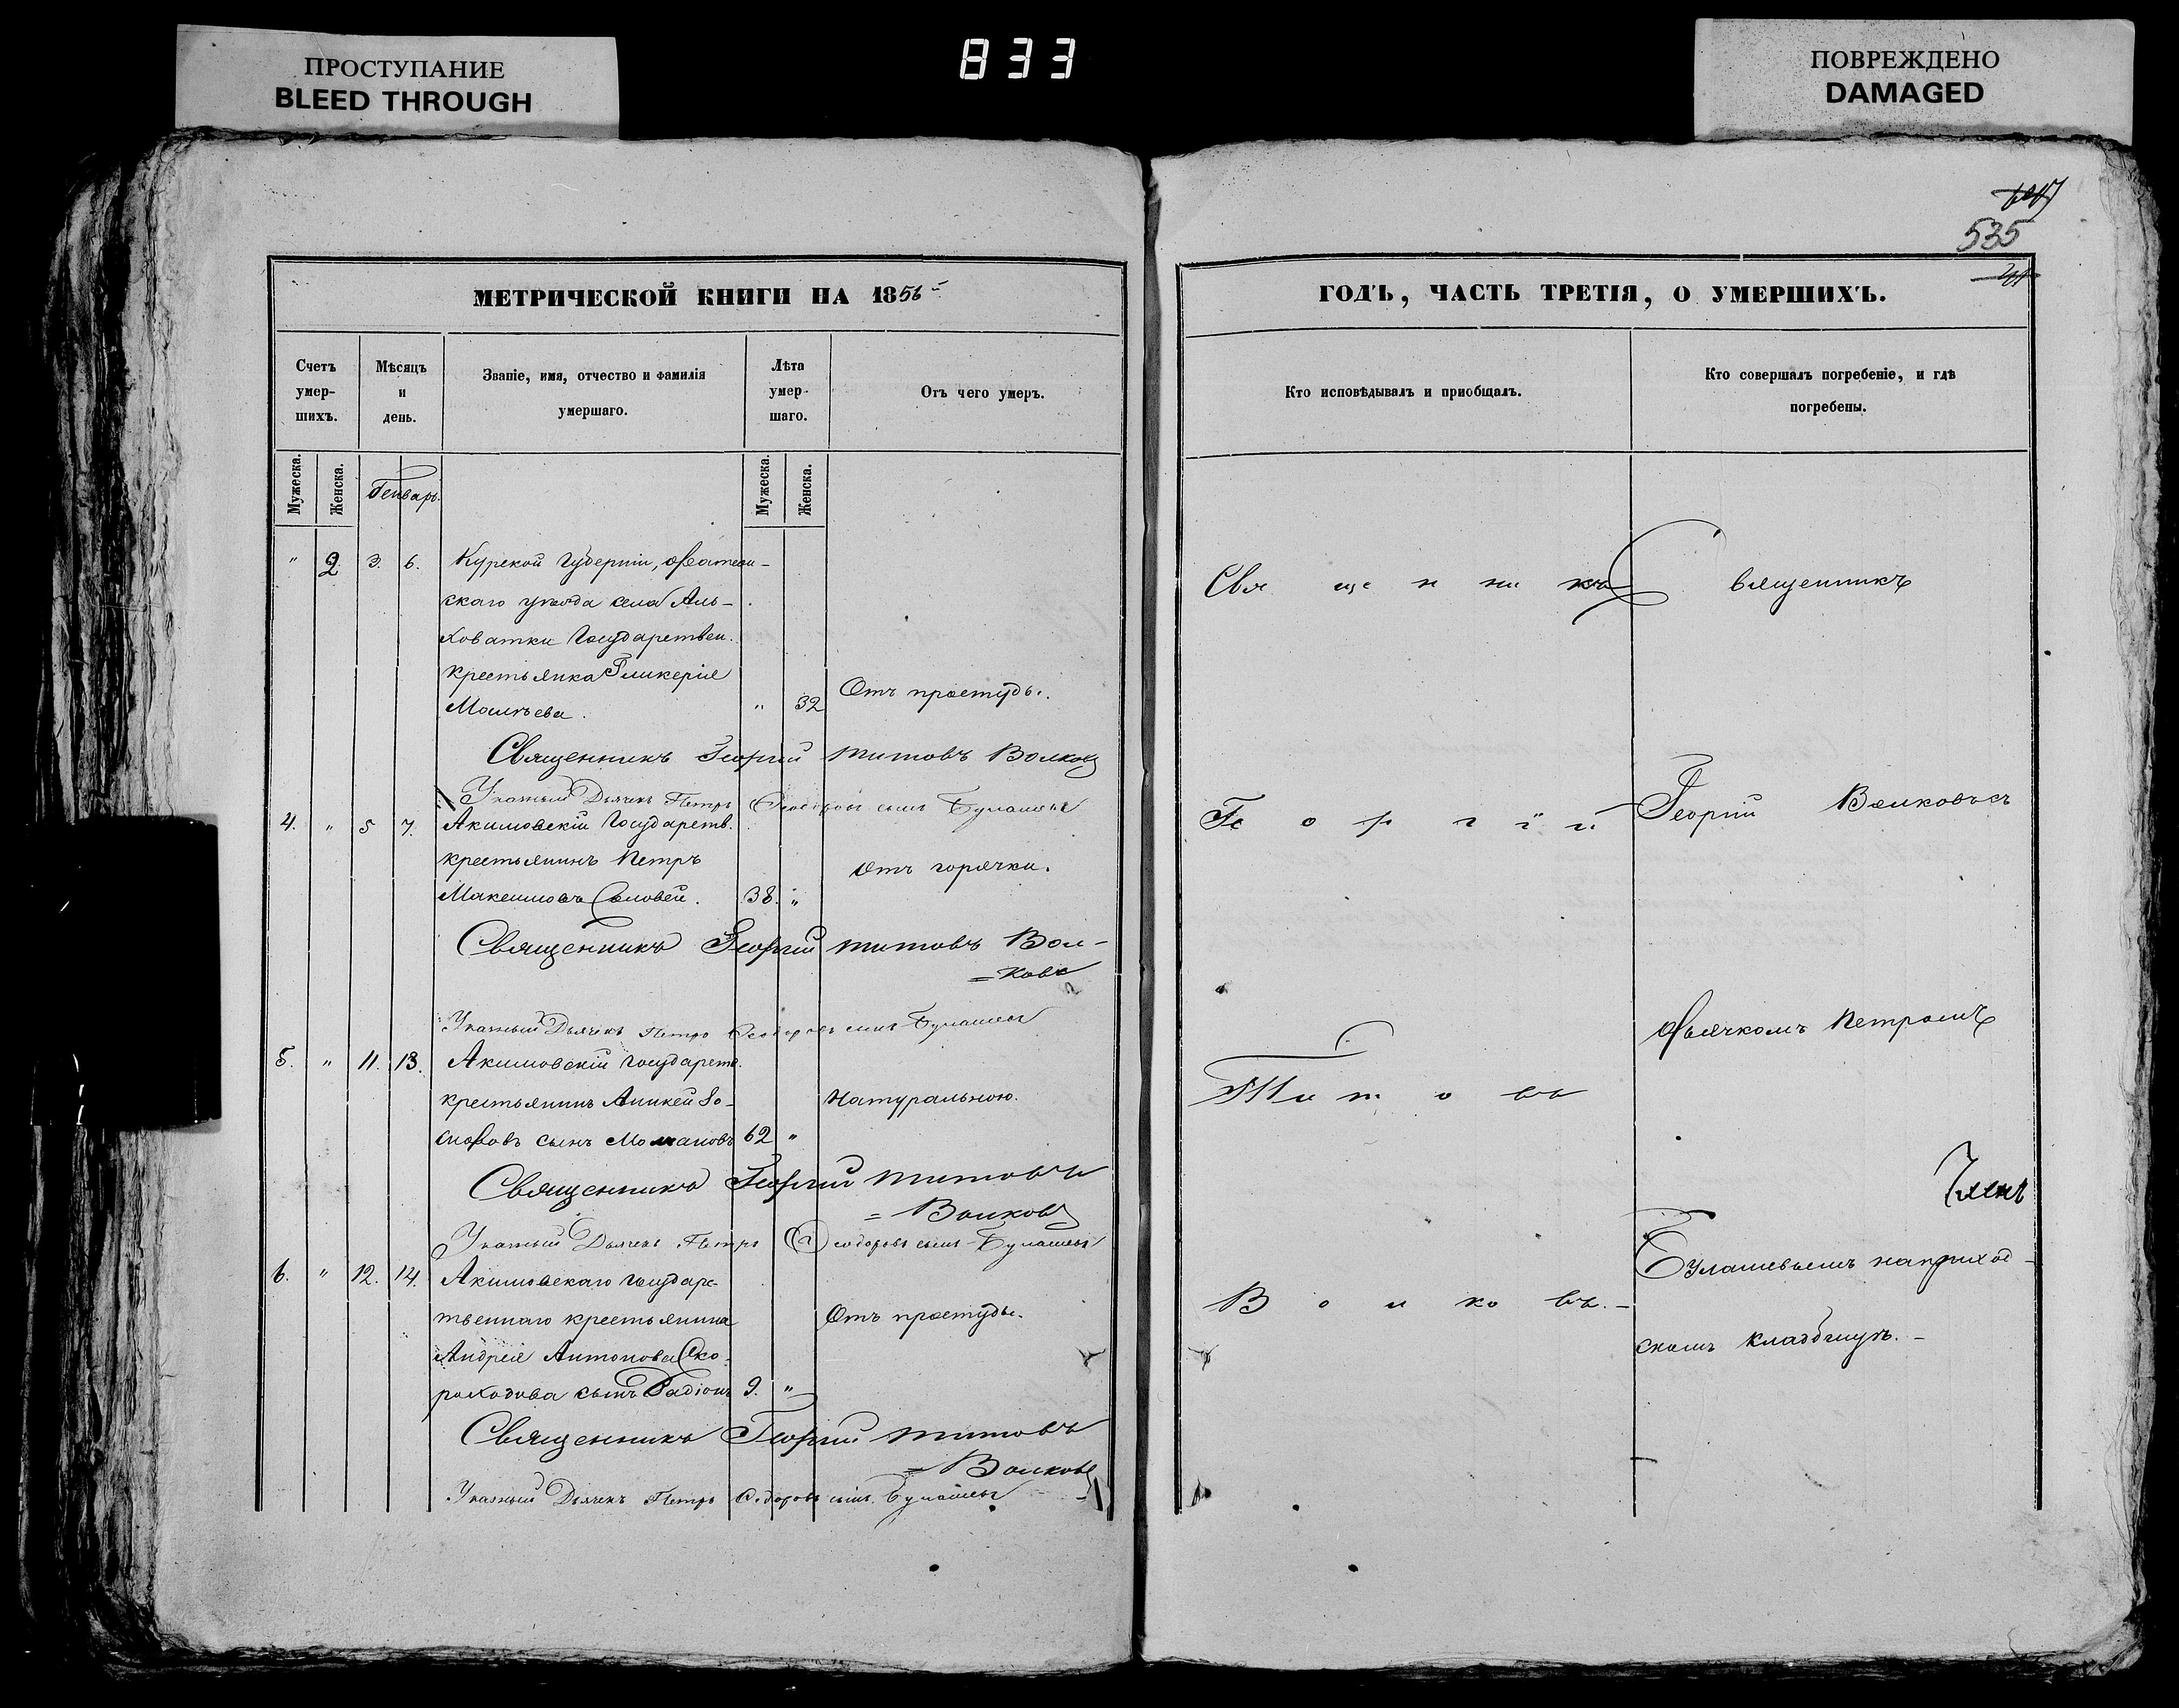 ПРОСТУПАНИЕ
BLEED THROUGH
833
ПОВРЕЖДЕНО
DAMAGED
535
МЕТРИЧЕСКОЙ КНИГИ НА 1856
Счетъ умер-шихъ.
Мѣсяцъ и день.
Званіе, имя, отчество и фамилія умершаго.
Лѣта умер-шаго.
Отъ чего умеръ.
Мужеска.
Женска.
Генварь.
Мужеска.
Женска.
" 2. 3. 6. Курской Губерніи,
скаго уѣзда села Аль-
ховатки Государствен.
крестьянка Гликерія
" 32 Отъ простуды.
Священникъ Георгій Титовъ Волковъ
Указный Дьячекъ Петръ Ѳеодоровъ сынъ Булашевъ
4. " 5 7. Акимовскій Государств.
крестьянинъ Петръ
Отъ горячки.
Максимовъ Соловей. 38. "
Священникъ Георгій Титовъ Вол-
=ковъ
Указный Дьячекъ Петръ Ѳеодоровъ сынъ Булашевъ
5. " 11. 13. Акимовскій Государств.
крестьянинъ Аникей
Натурально.
сынъ 62 "
Священникъ Георгій Титовъ
= Волковъ
Указный Дьячекъ Петръ Ѳеодоровъ сынъ Булашевъ
6. " 12. 14. Акимовскаго Государс-
твеннаго крестьянина
Отъ простуды.
Андрея Антонова Ско-
роходова сынъ Радіонъ 9. "
Священникъ Георгій Титовъ
= Волковъ
Указный Дьячекъ Петръ Ѳедоровъ сынъ Булашевъ
ГОДЪ, ЧАСТЬ ТРЕТІЯ, О УМЕРШИХЪ.
Кто исповѣдывалъ и пріобщалъ.
Кто совершалъ погребеніе, и гдѣ погребены.
Священникъ
Георгій
Титовъ
Волковъ.-
Священникъ
Георгій Волковъ съ
Дьячкомъ Петромъ
Членъ
Булашевымъ на приход-
скомъ кладбищѣ.-